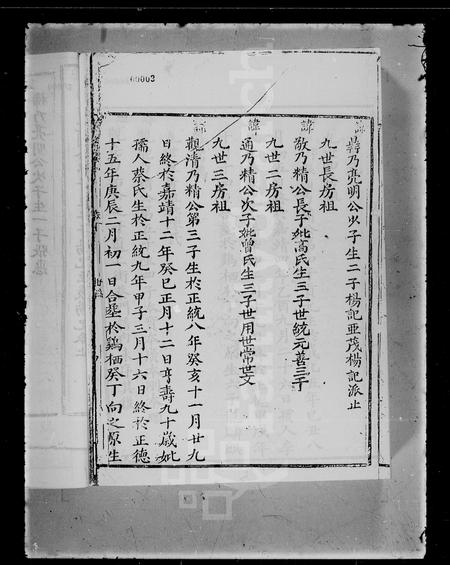 00002
諱彝乃亮明公次子生二子楊記亞茂楊記派止
九世長房祖
諱敬乃精公長子妣高氏生三子世統元善三子
九世二房祖
諱通乃精公次子妣曾氏生三子世用世常世文
九世三房祖
諱觀清乃精公第三子生於正統八年癸亥十一月廿九
日終於嘉靖十二年癸巳正月十二日享壽九十歲妣
孺人蔡氏生於正統九年甲子三月十六日終於正德
十五年庚辰二月初一日合塟於鷄栖癸丁向之原生